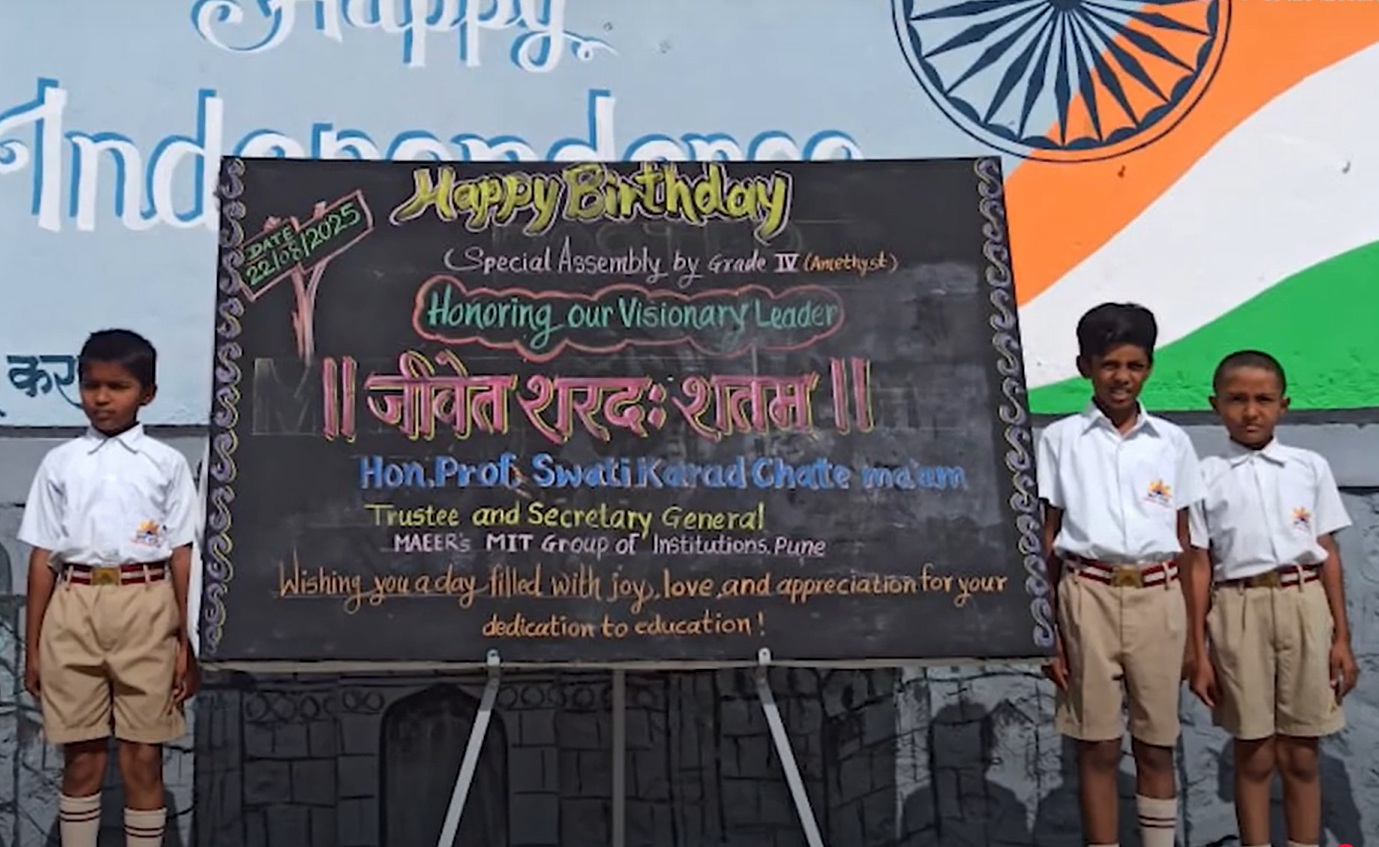 Happy
Independence
कर
Happy Birthday
DATE
22/08/2025
Special Assembly by Grade IV (Amethyst)
Honoring our Visionary Leader
॥ जीवेत शरदः शतम ॥
Hon. Prof. Swati Karad Chate ma'am
Trustee and Secretary General
MAEER's MIT Group of Institutions, Pune
Wishing you a day filled with joy, love, and appreciation for your
dedication to education!